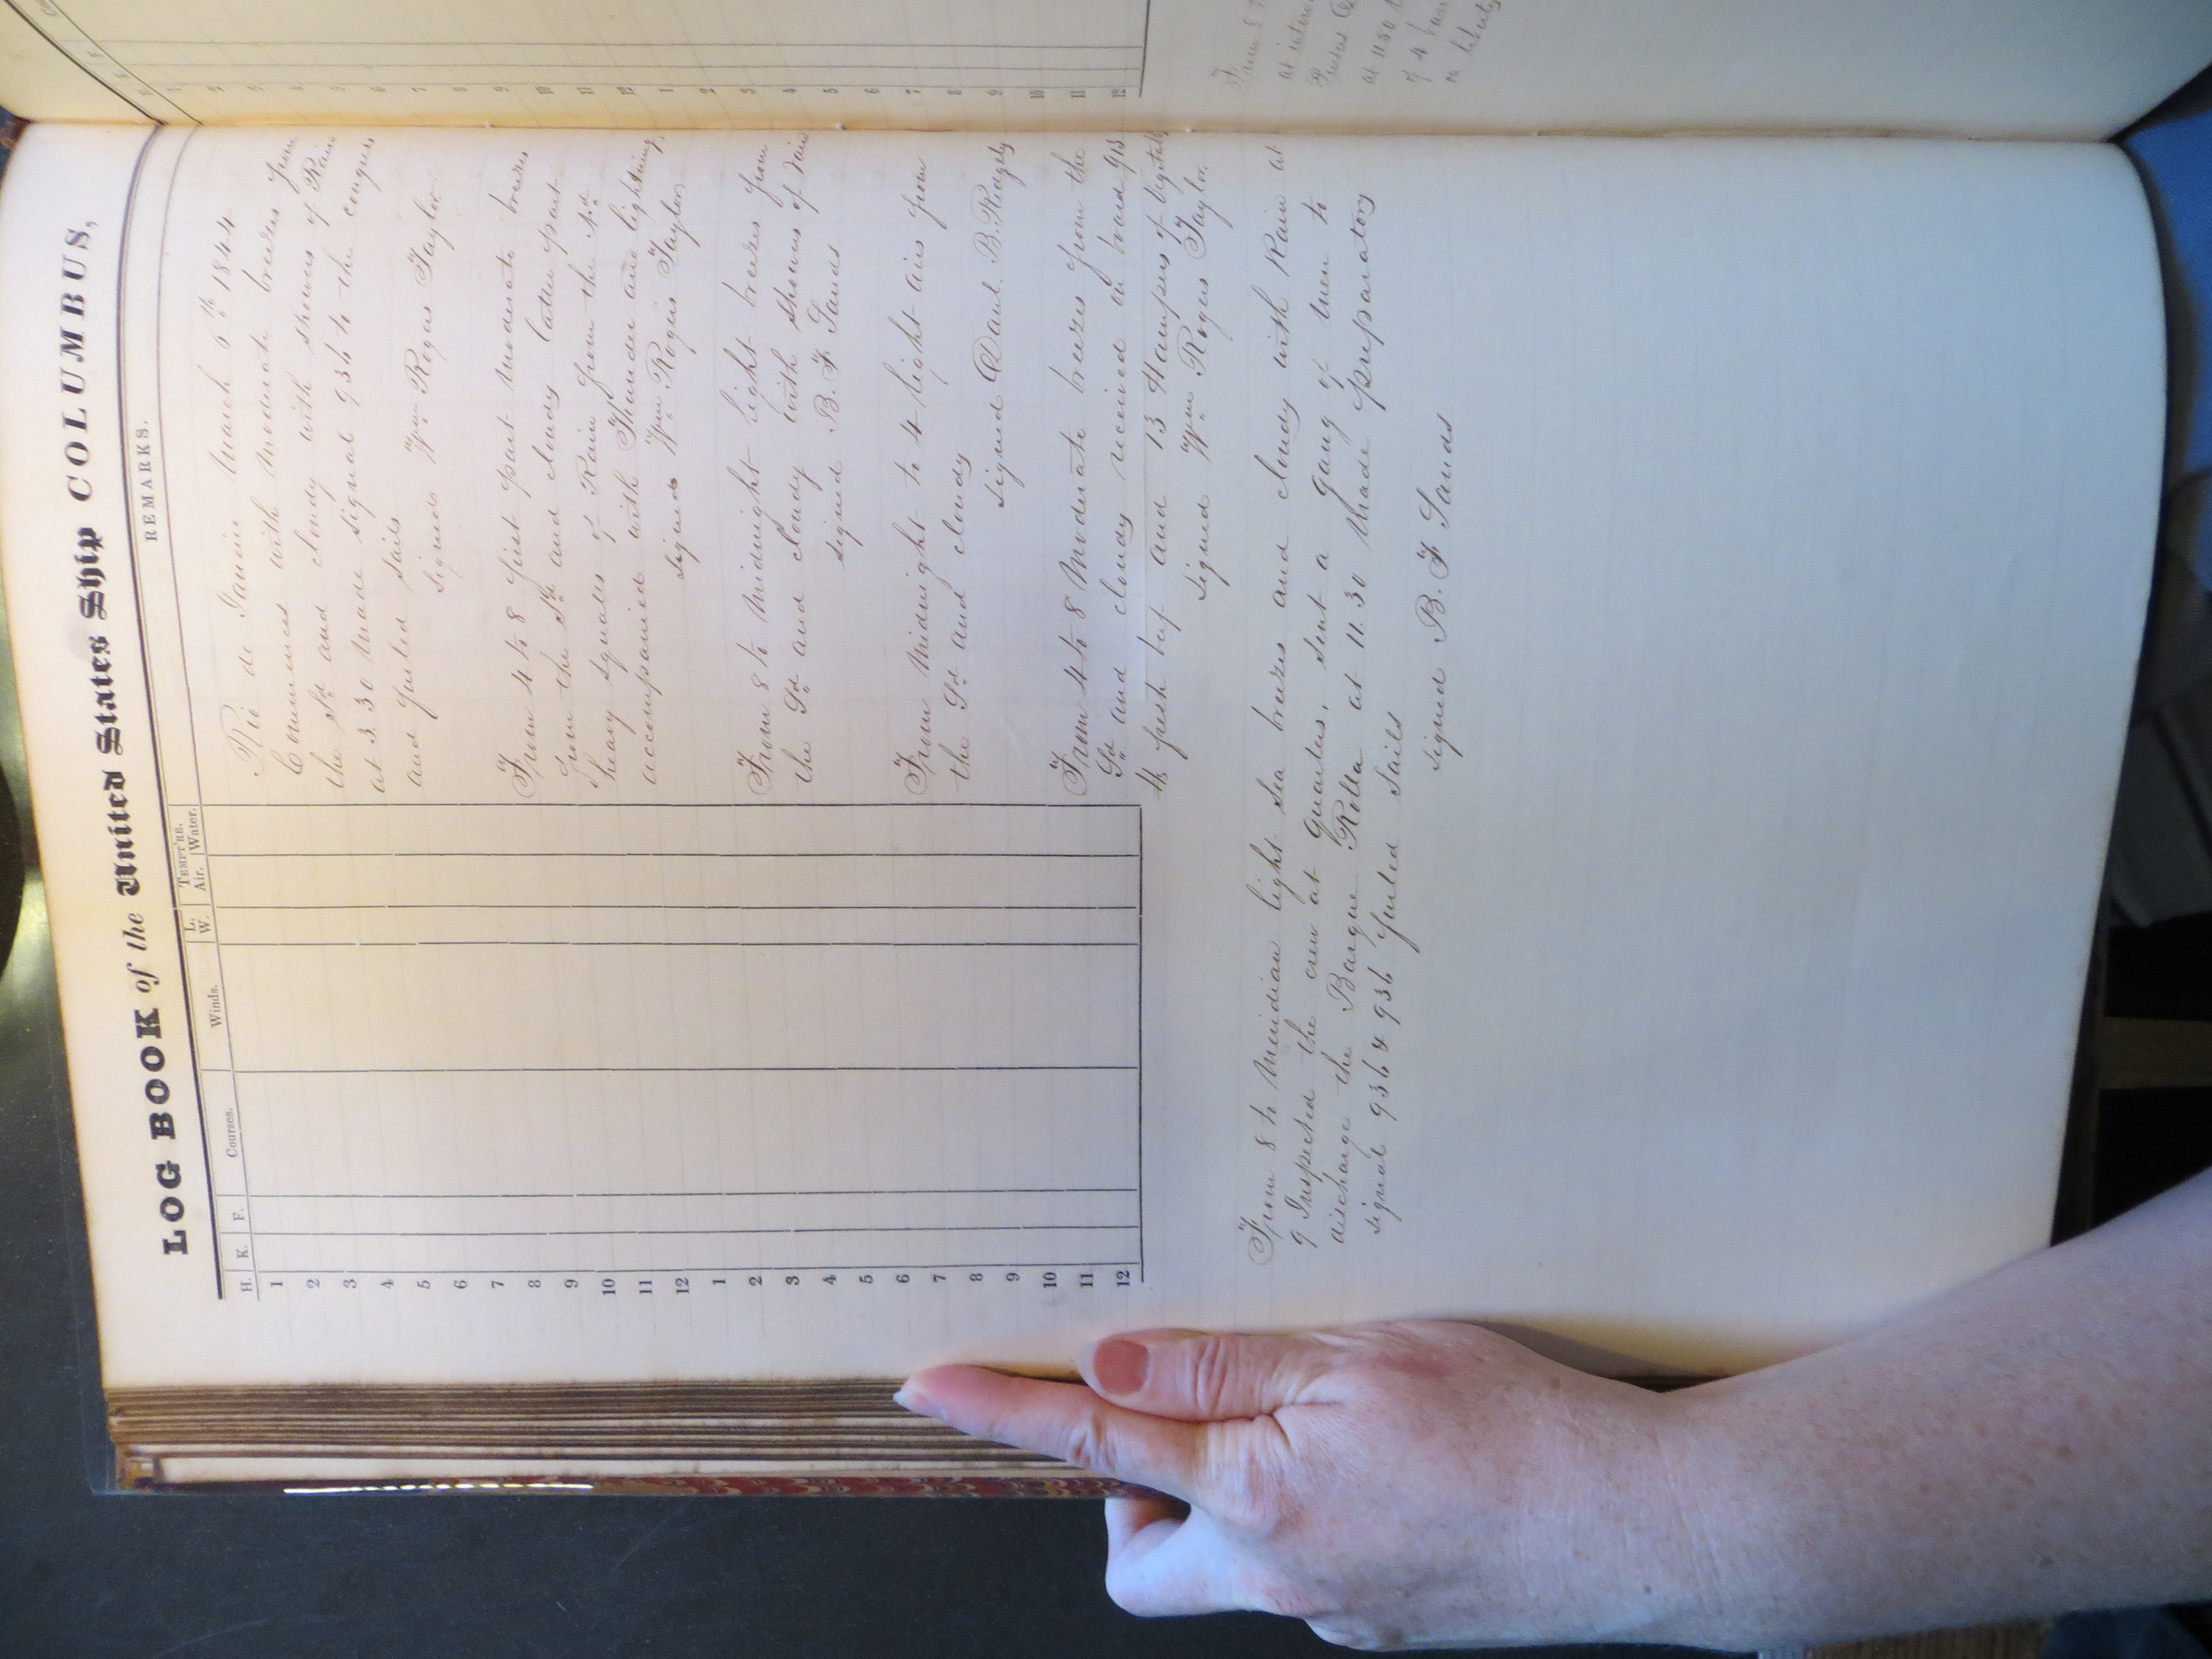 LOG BOOK of the United States Ship COLUMBUS,
H. K. F. Courses. Winds. L. W. TEMPT'RE. Air. Water. REMARKS.
1
2
3
4
5
6
7
8
9
10
11
12
1
2
3
4
5
6
7
8
9
10
11
12
Rio de Janeiro March 6th 1844
Commences with moderate breezes from
the Sd and cloudy with showers of Rain
at 3.30 Made signal 936 to the congress
and furled sails
signed Wm Rogers Taylor
From 4 to 8 first part moderate breezes
from the Sd and cloudy latter part
heavy squalls of Rain from the Nd
accompanied with Thunder and lightning
signed Wm Rogers Taylor
From 8 to Midnight light breezes from
the Sd and cloudy with showers of rain
signed B. F Sands
From Midnight to 4 light airs from
the Sd and cloudy
signed Danl. B. Ridgely
From 4 to 8 Moderate breezes from the
Sd and cloudy received on board 918
lbs fresh beef and 13 Hampers of vegetables
signed Wm Rogers Taylor.
From 8 to Meridian light sea breezes and cloudy with Rain at
9 Inspected the crew at quarters, sent a gang of men to
discharge the Barque Rolla at 11.30 Made preparatory
signal 936 & 936 furled sails
signed B. F Sands
From 8 to
at
at 1150
of 4
on liberty